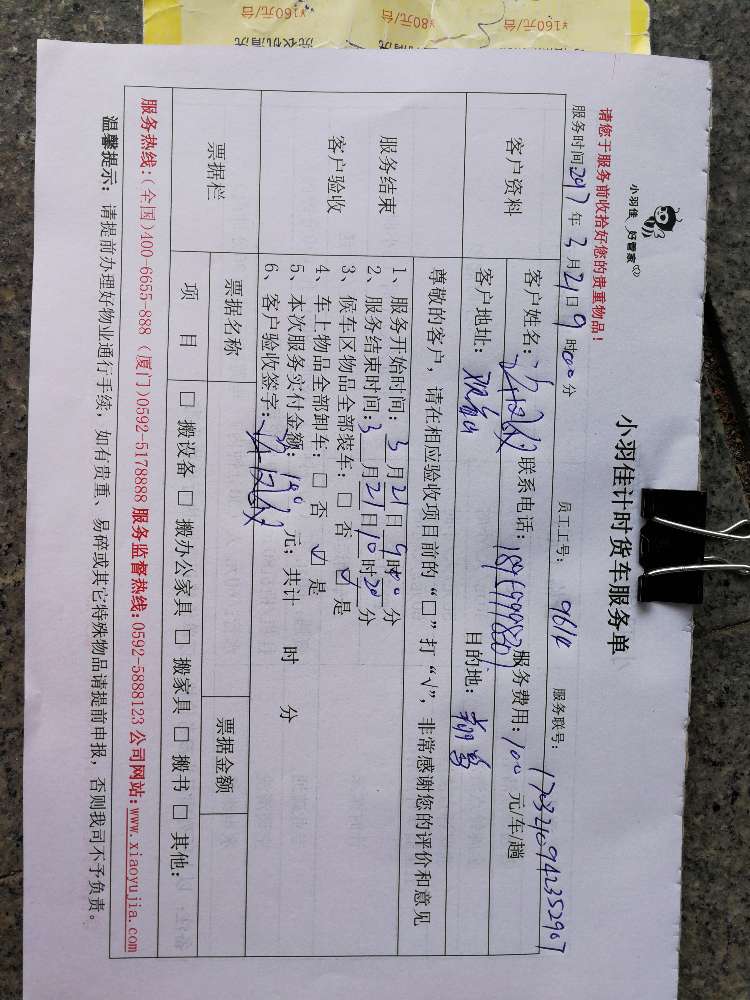 ¥160元/台
¥80元/台
¥160元/台
洗衣机清洗
小羽佳 好管家
小羽佳计时货车服务单
请您于服务前收拾好您的贵重物品!
员工工号: 9610
服务联号: 1703240942352907
服务时间: 2017年3月21日9时00分
客户资料
客户姓名:
联系电话:
服务费用: 100 元/车/趟
客户地址: 观音山
目的地:
尊敬的客户, 请在相应验收项目前的“□”打“√”, 非常感谢您的评价和意见
服务结束
客户验收
1、服务开始时间: 3月21日9时00分
2、服务结束时间: 3月21日10时20分
3、候车区物品全部装车: □ 否 ☑ 是
4、车上物品全部卸车: □ 否 ☑ 是
5、本次服务实付金额: 100 元; 共计 时 分
6、客户验收签字:
票据栏
票据名称
票据金额
项 目
□ 搬设备 □ 搬办公家具 □ 搬家具 □ 搬书 □ 其他:
服务热线:(全国)400-6655-888 (厦门)0592-5178888 服务监督热线:0592-5888123 公司网站:www.xiaoyujia.com
温馨提示: 请提前办理好物业通行手续, 如有贵重、易碎或其它特殊物品请提前申报, 否则我司不予负责。